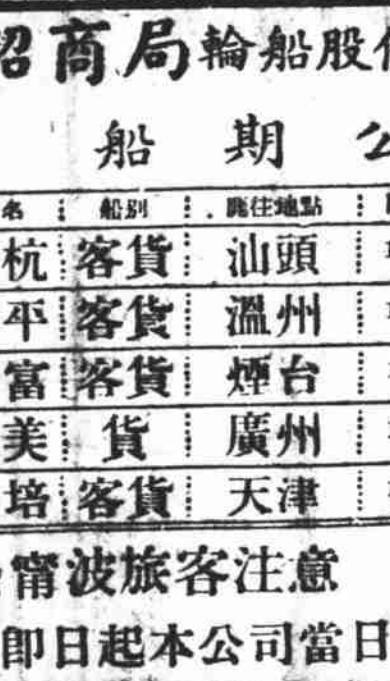 招商局輪船股
船期公
名 船別 駛往地點
杭 客貨 汕頭
平 客貨 溫州
富 客貨 煙台
美 貨 廣州
培 客貨 天津
甯波旅客注意
即日起本公司當日